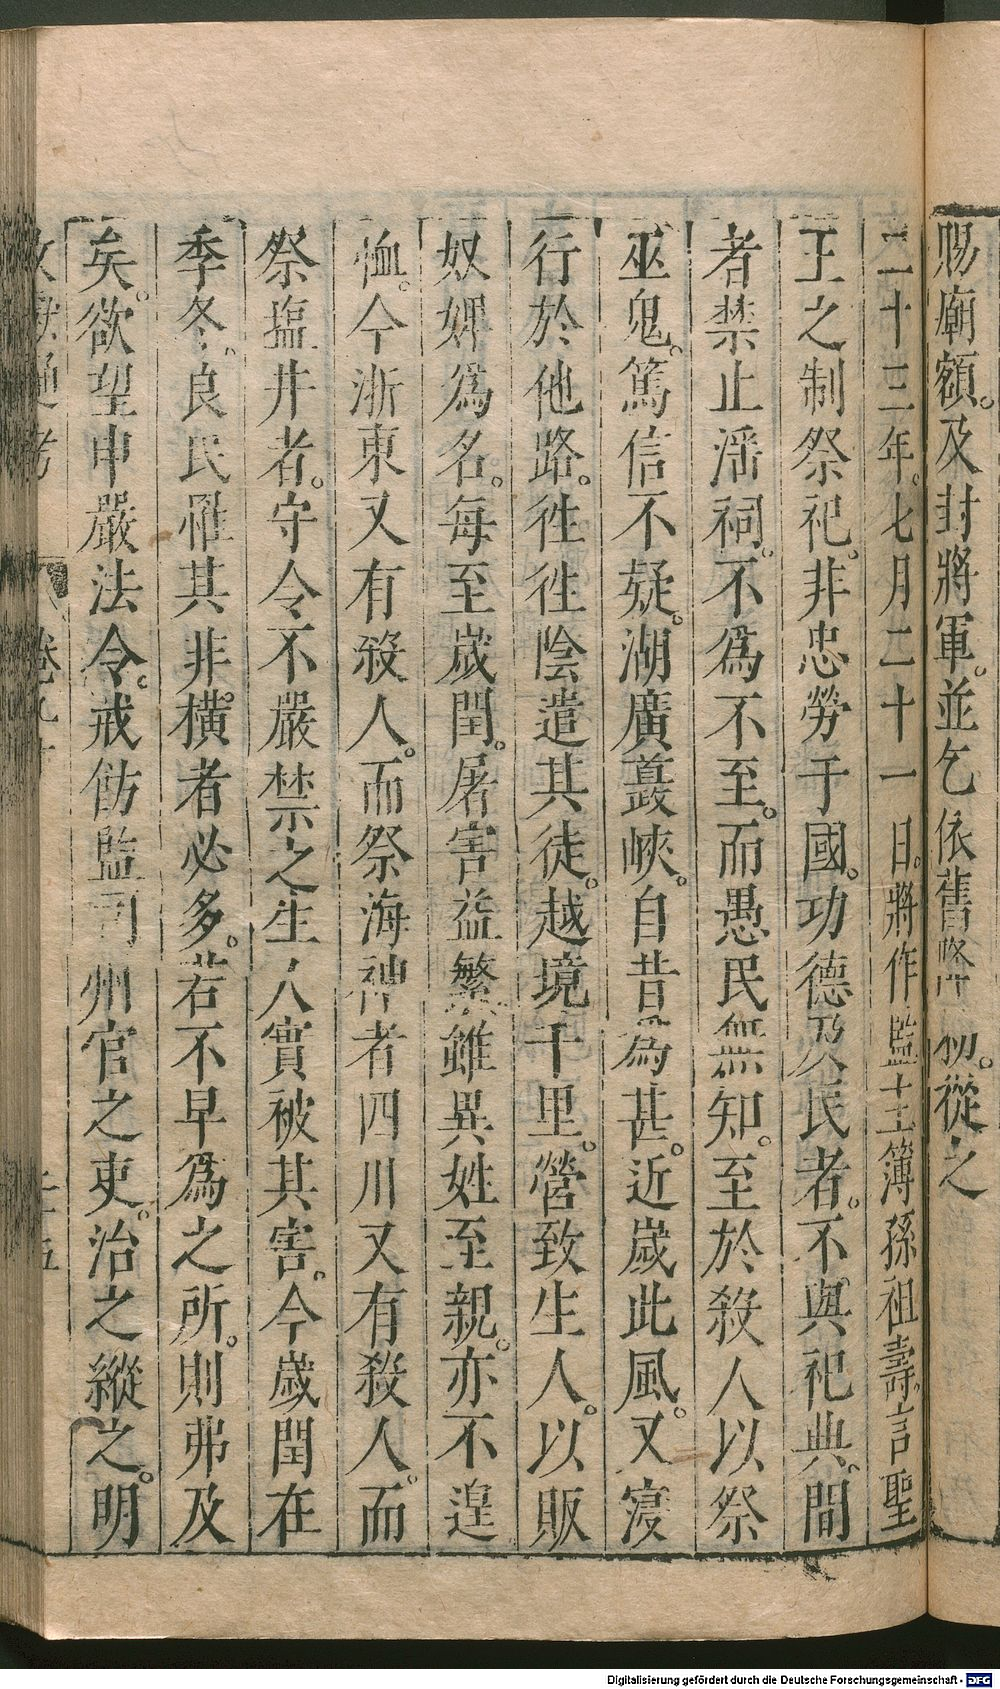 賜廟額。及封將軍。並乞依舊降初。從之
二十三年。七月二十一日。將作監主簿孫祖壽。言聖
王之制祭祀。非忠勞于國。功德及民者。不與祀典。間
者禁止滛祠。不為不至。而愚民無知。至於殺人以祭
巫鬼。篤信不疑。湖廣䕫峽。自昔為甚。近嵗此風。又寖
行於他路。徃徃陰遣其徒。越境千里。營致生人。以販
奴婢爲名。每至嵗閏。屠害益繁。雖異姓至親。亦不遑
恤。今浙東又有殺人。而祭海神者四川又有殺人。而
祭塩井者。守令不嚴禁之生人實被其害。今嵗閏在
季冬。良民罹其非橫者必多。若不早爲之所。則弗及
矣。欲望申嚴法令。戒飭監司州官之吏。治之縱之。明
文獻通考 卷九十
Digitalisierung gefördert durch die Deutsche Forschungsgemeinschaft - DFG